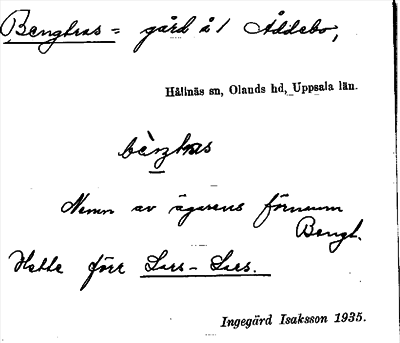 Bengtsas = gård å 1 Åddebo,
Hållnäs sn, Olands hd, Uppsala län.
Namn av ägarens förnamn
Bengt.
Hette förr Lars-Lars.
Ingegärd Isaksson 1935.